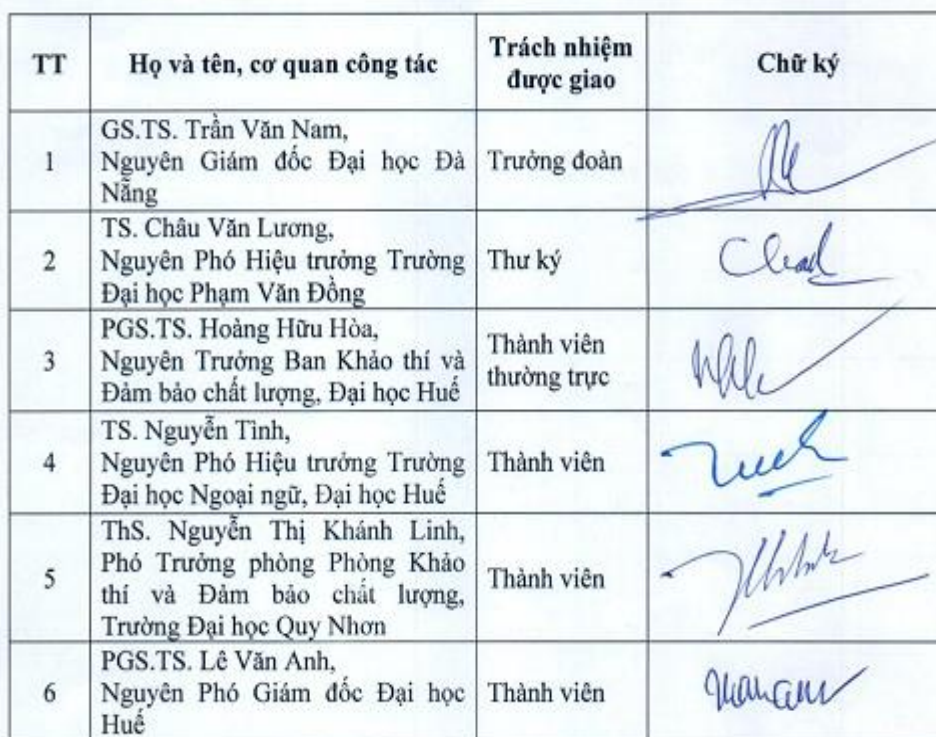 TT
Họ và tên, cơ quan công tác
Trách nhiệm
được giao
Chữ ký
1
GS.TS. Trần Văn Nam,
Nguyên Giám đốc Đại học Đà
Nẵng
Trưởng đoàn
2
TS. Châu Văn Lương,
Nguyên Phó Hiệu trưởng Trường
Đại học Phạm Văn Đồng
Thư ký
3
PGS.TS. Hoàng Hữu Hòa,
Nguyên Trưởng Ban Khảo thí và
Đảm bảo chất lượng, Đại học Huế
Thành viên
thường trực
4
TS. Nguyễn Tình,
Nguyên Phó Hiệu trưởng Trường
Đại học Ngoại ngữ, Đại học Huế
Thành viên
5
ThS. Nguyễn Thị Khánh Linh,
Phó Trưởng phòng Phòng Khảo
thí và Đảm bảo chất lượng,
Trường Đại học Quy Nhơn
Thành viên
6
PGS.TS. Lê Văn Anh,
Nguyên Phó Giám đốc Đại học
Huế
Thành viên